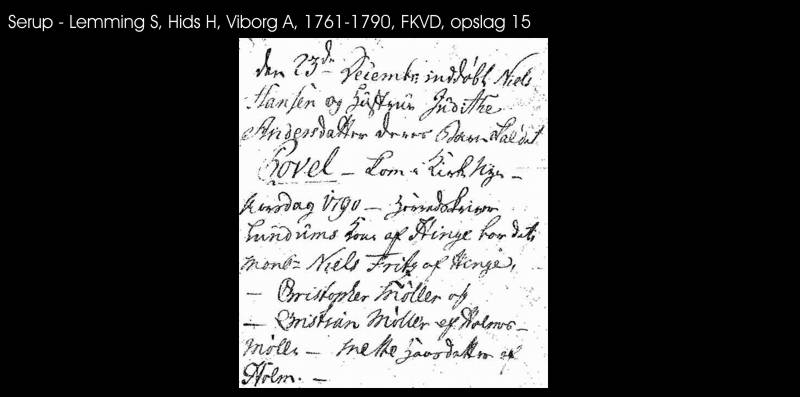 Serup - Lemming S, Hids H, Viborg A, 1761-1790, FKVD, opslag 15
den 23de Decembr: inddøbt Niels
Hansen og Hustrue Judithe
Andersdatter deres Barn Kaldet
Povel - kom i Kirke Nye-
Aarsdag 1790 - Herredskriver
Lundums Kone af Hinge bar det,
mons: Niels Fritz af Hinge,
- Cristopher Möller og
- Cristian Möller af Holms-
Mölle - Mette datter af
Holm. -